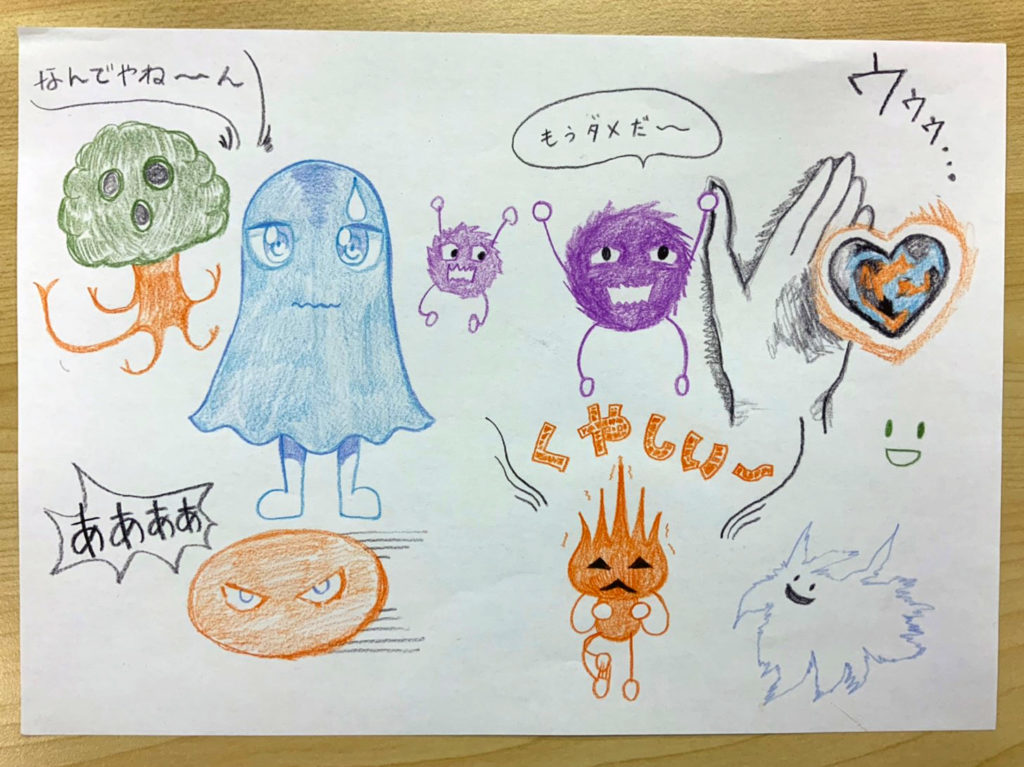 なんでやね〜ん
もうダメだ〜
ウゥゥ...
くやしい〜
ああああ